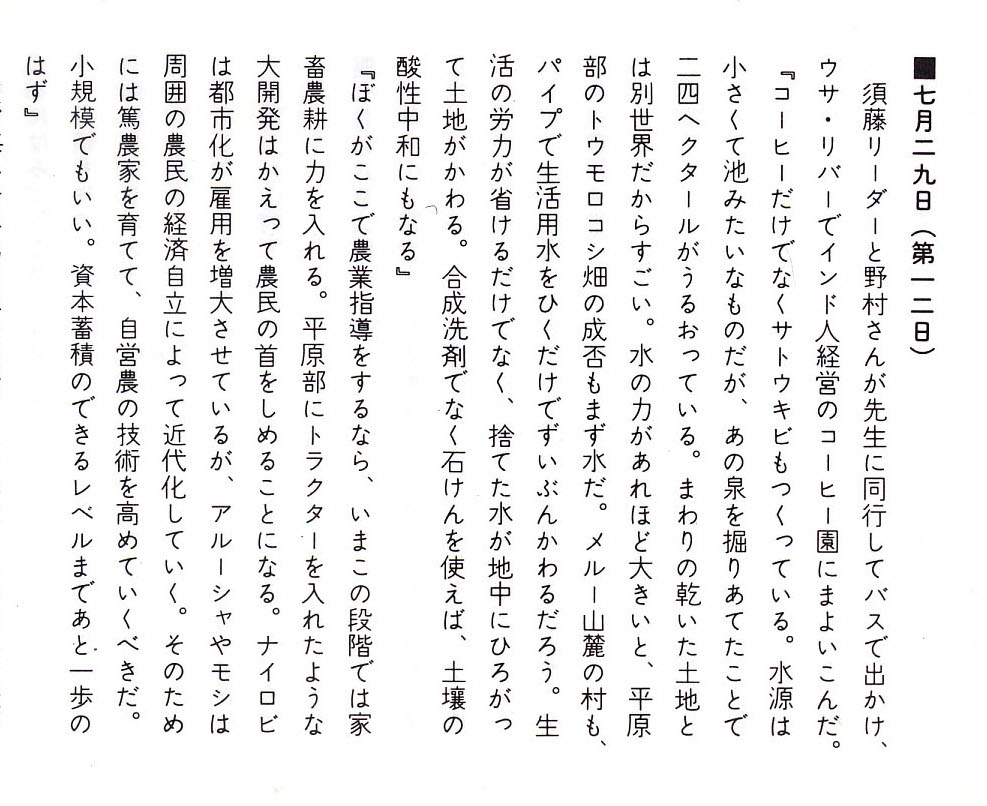 ■七月二九日（第一二日）
須藤リーダーと野村さんが先生に同行してバスで出かけ、
ウサ・リバーでインド人経営のコーヒー園にまよいこんだ。
『コーヒーだけでなくサトウキビもつくっている。水源は
小さくて池みたいなものだが、あの泉を掘りあてたことで
二四ヘクタールがうるおっている。まわりの乾いた土地と
は別世界だからすごい。水の力があれほど大きいと、平原
部のトウモロコシ畑の成否もまず水だ。メルー山麓の村も、
パイプで生活用水をひくだけでずいぶんかわるだろう。生
活の労力が省けるだけでなく、捨てた水が地中にひろがっ
て土地がかわる。合成洗剤でなく石けんを使えば、土壌の
酸性中和にもなる』
『ぼくがここで農業指導をするなら、いまこの段階では家
畜農耕に力を入れる。平原部にトラクターを入れたような
大開発はかえって農民の首をしめることになる。ナイロビ
は都市化が雇用を増大させているが、アルーシャやモシは
周囲の農民の経済自立によって近代化していく。そのため
には篤農家を育てて、自営農の技術を高めていくべきだ。
小規模でもいい。資本蓄積のできるレベルまであと一歩の
はず』